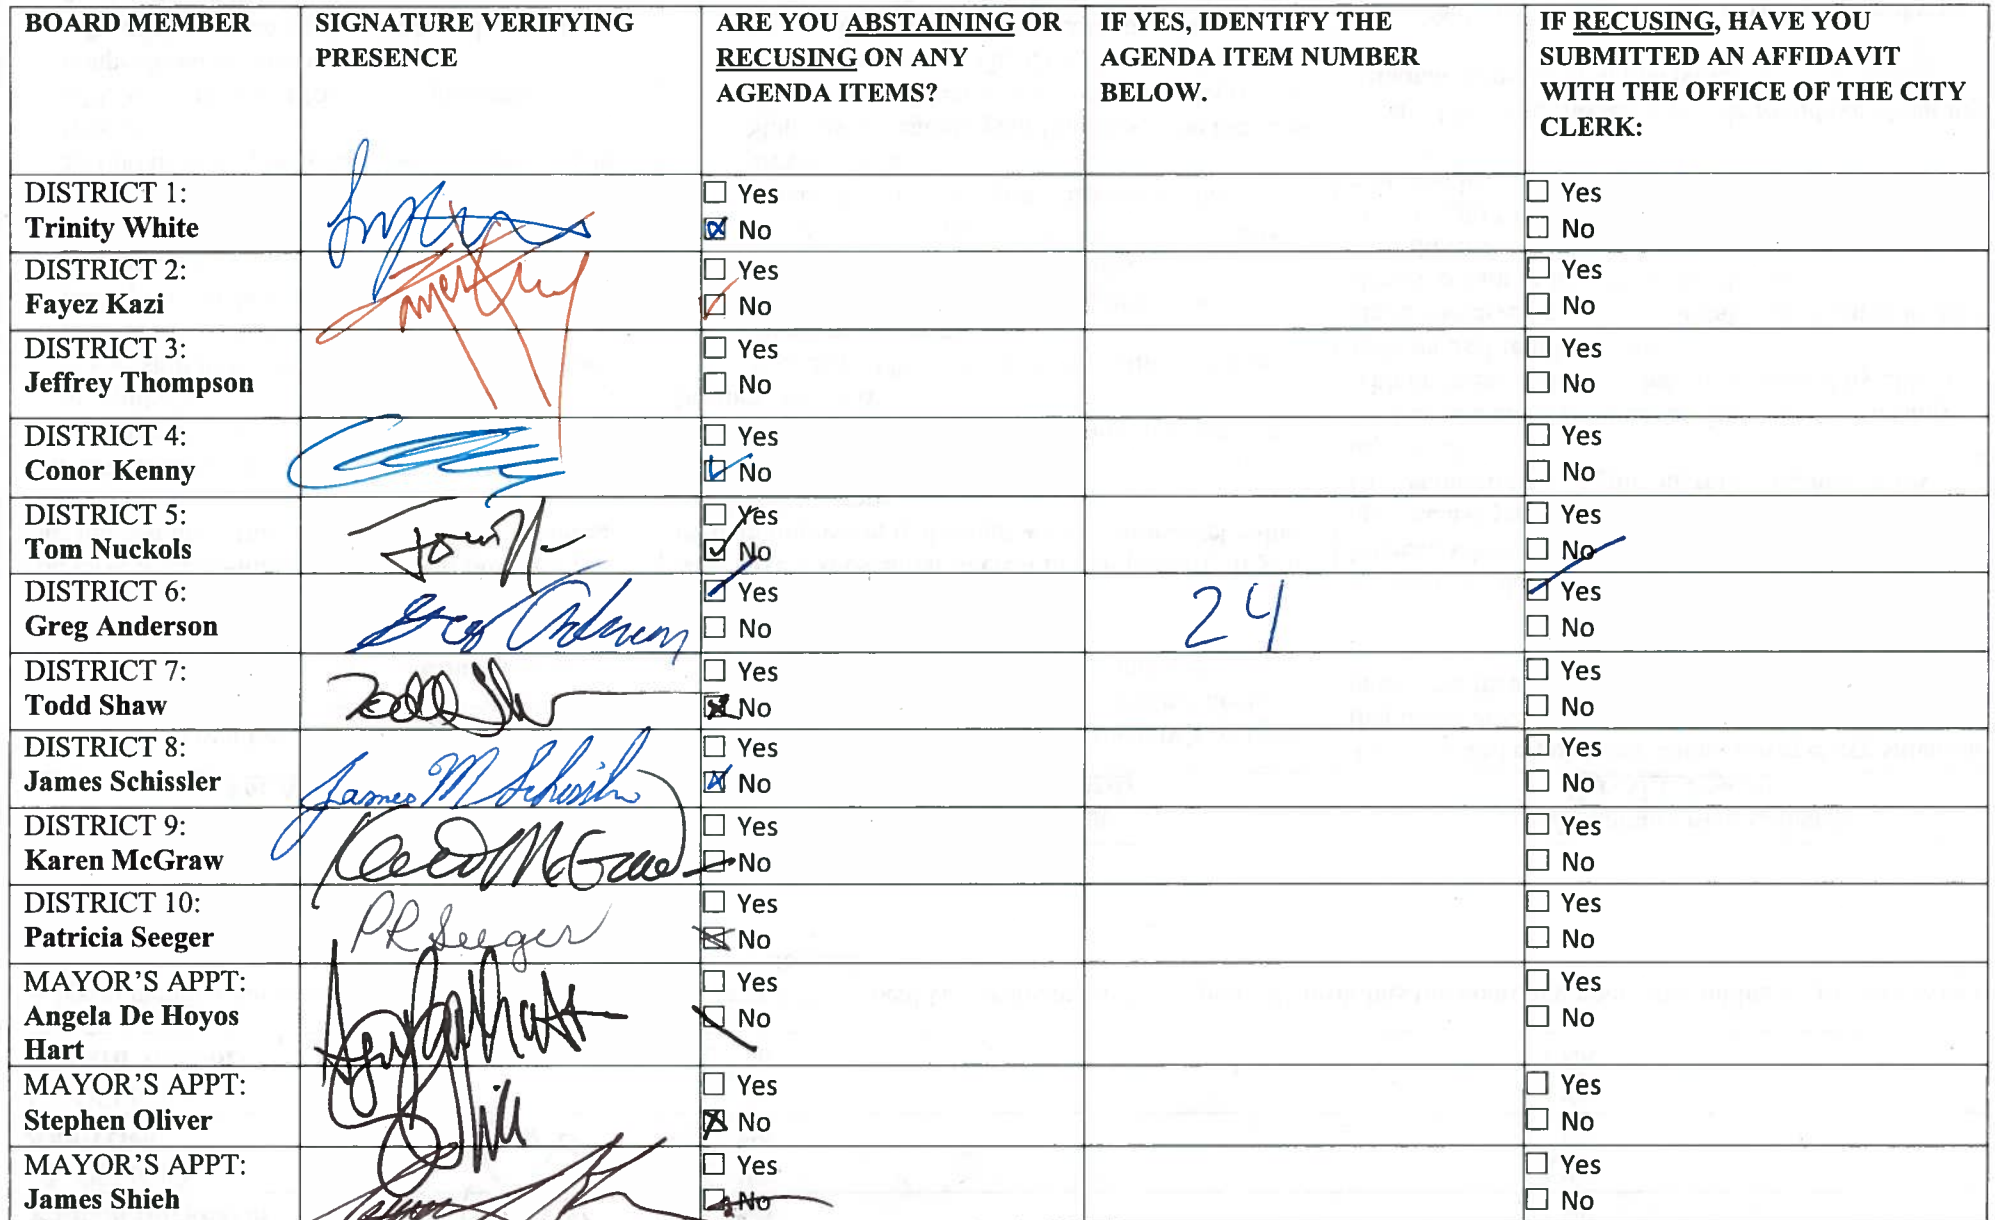 BOARD MEMBER
SIGNATURE VERIFYING
PRESENCE
ARE YOU ABSTAINING OR
RECUSING ON ANY
AGENDA ITEMS?
IF YES, IDENTIFY THE
AGENDA ITEM NUMBER
BELOW.
IF RECUSING, HAVE YOU
SUBMITTED AN AFFIDAVIT
WITH THE OFFICE OF THE CITY
CLERK:
DISTRICT 1:
Trinity White
☐ Yes
☒ No
☐ Yes
☐ No
DISTRICT 2:
Fayez Kazi
☐ Yes
☑ No
☐ Yes
☐ No
DISTRICT 3:
Jeffrey Thompson
☐ Yes
☐ No
☐ Yes
☐ No
DISTRICT 4:
Conor Kenny
☐ Yes
☑ No
☐ Yes
☐ No
DISTRICT 5:
Tom Nuckols
☐ Yes
☑ No
☐ Yes
☐ No
DISTRICT 6:
Greg Anderson
Greg Anderson
☑ Yes
☐ No
24
☑ Yes
☐ No
DISTRICT 7:
Todd Shaw
Todd Shaw
☐ Yes
☒ No
☐ Yes
☐ No
DISTRICT 8:
James Schissler
James M Schissler
☐ Yes
☒ No
☐ Yes
☐ No
DISTRICT 9:
Karen McGraw
Karen McGraw
☐ Yes
☑ No
☐ Yes
☐ No
DISTRICT 10:
Patricia Seeger
PR Seeger
☐ Yes
☒ No
☐ Yes
☐ No
MAYOR'S APPT:
Angela De Hoyos
Hart
☐ Yes
☑ No
☐ Yes
☐ No
MAYOR'S APPT:
Stephen Oliver
☐ Yes
☒ No
☐ Yes
☐ No
MAYOR'S APPT:
James Shieh
☐ Yes
☑ No
☐ Yes
☐ No